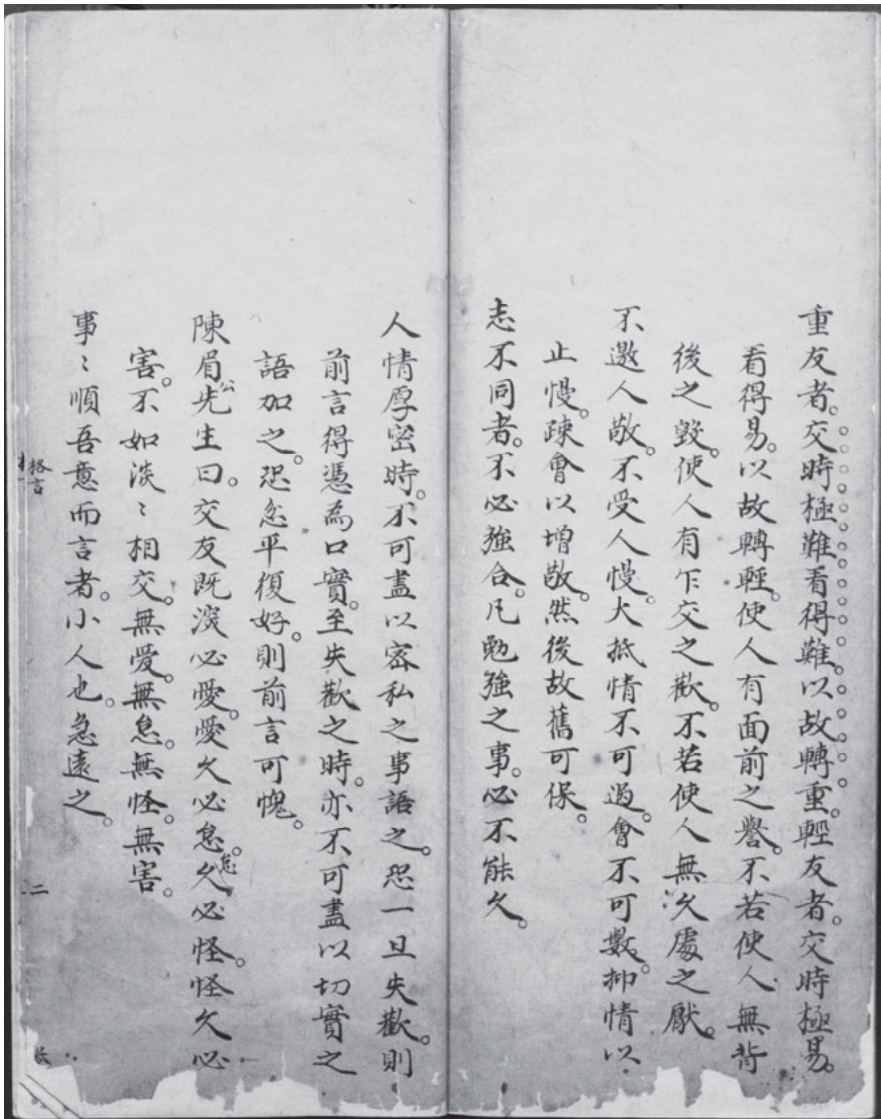 重友者。交時極難看得難。以故轉重。輕友者。交時極易。
看得易。以故轉輕。使人有面前之譽。不若使人無背
後之毀。使人有乍交之歡。不若使人無久處之厭。
不邀人敬。不受人慢。大抵情不可過。會不可數。抑情以
止慢。疎會以增敬。然後故舊可保。
志不同者。不必強合。凡勉強之事。必不能久。
人情厚密時。不可盡以密私之事語之。恐一旦失歡。則
前言得憑為口實。至失歡之時。亦不可盡以切實之
語加之。恐忿平復好。則前言可愧。
陳眉公先生曰。交友既淡必愛。愛久必怠。怠久必怪。怪久必
害。不如淡〻相交。無愛。無怠。無怪。無害。
事〻順吾意而言者。小人也。急遠之。
格言
二